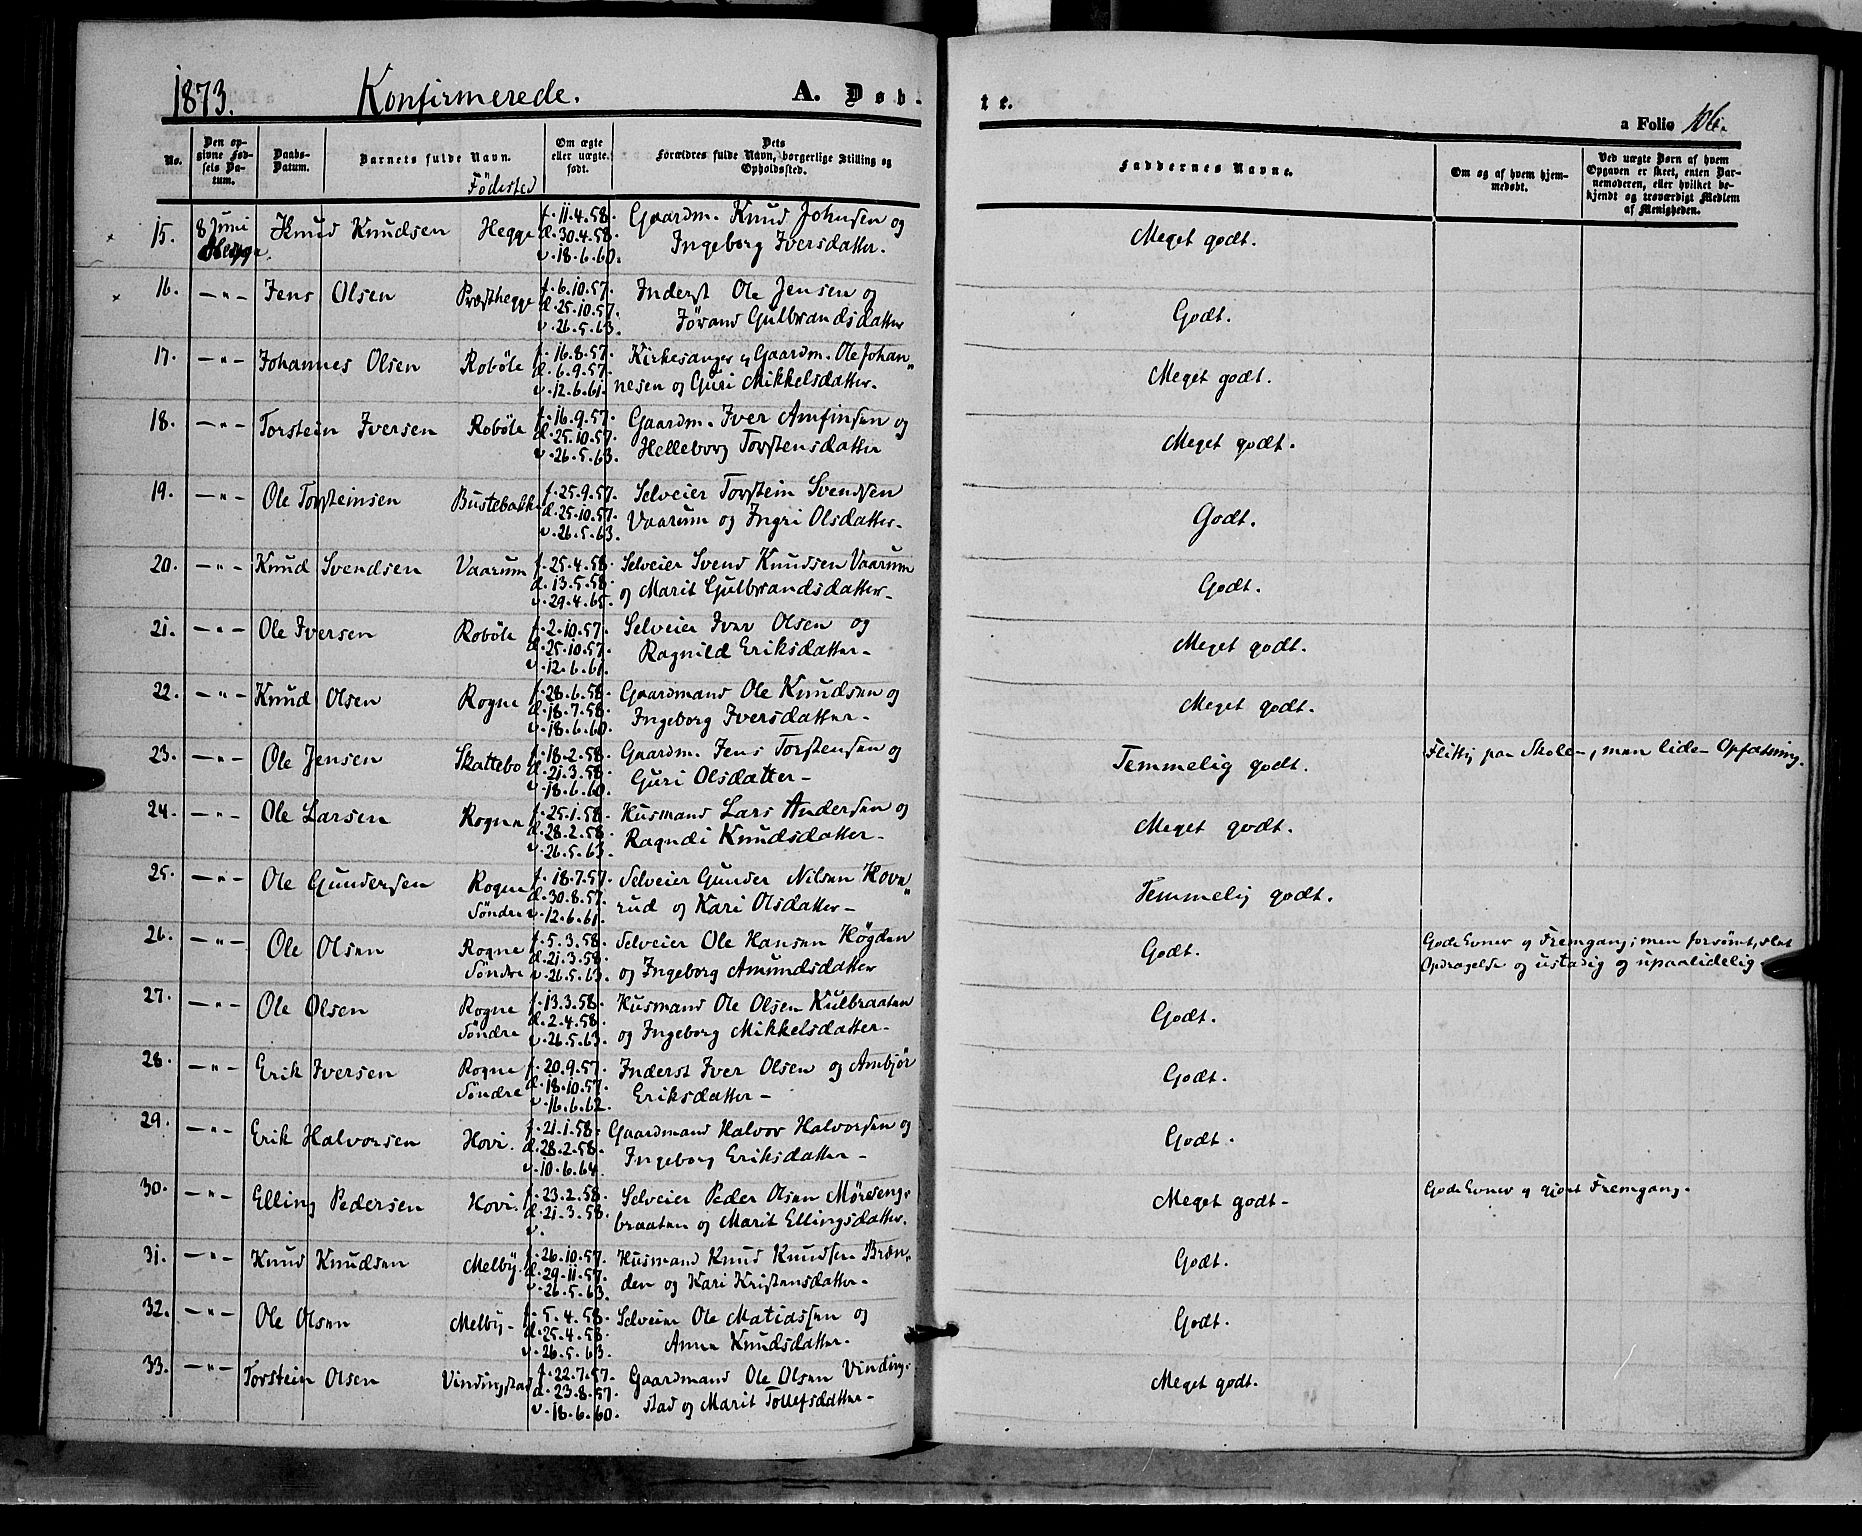 1873. Konfirmerede. A. Døb-
te. a Folio 106.
No. Den opgivne Fødsels Datum. Daabs-Datum. Barnets fulde Navn. Fødested Om ægte eller uægte født. Dets Forældres fulde Navn, borgerlige Stilling og Opholdssted.
Faddernes Navne. Om og af hvem hjemmedøbt. Ved uægte Børn af hvem Opgaven er skeet, enten Barnemoderen, eller hvilket bekjendt og troværdigt Medlem af Menigheden.
15. 8 Juni Hegge. Knud Knudsen Hegge f. 11.4.58. d. 30.4.58. v. 18.6.60. Gaardm. Knud Johnsen og
Ingeborg Iversdatter. Meget godt.
16. —"— Jens Olsen Præsthegge f. 6.10.57. d. 25.10.57. v. 26.5.63. Inderst Ole Jensen og
Jørand Gulbrandsdatter Godt.
17. —"— Johannes Olsen Robøle f. 16.8.57. d. 6.9.57. v. 12.6.61. Kirkesanger og Gaardm. Ole Johan„
nesen og Guri Mikkelsdatter. Meget godt.
18. —"— Torstein Iversen Robøle f. 16.9.57. d. 25.10.57. v. 26.5.63. Gaardm. Iver Amfinsen og
Helleborg Torstensdatter Meget godt.
19. —"— Ole Torsteinsen Bustebakke f. 25.9.57. d. 25.10.57. v. 26.5.63. Selveier Torstein Svendsen
Vaarum og Ingri Olsdatter- Godt.
20. —"— Knud Svendsen Vaarum f. 25.4.58. d. 13.5.58. v. 29.4.65. Selveier Svend Knudsen Vaarum
og Marit Gulbrandsdatter- Godt.
21. —"— Ole Iversen Robøle f. 2.10.57. d. 25.10.57. v. 12.6.61. Selveier Iver Olsen og
Ragnild Eriksdatter- Meget godt.
22. —"— Knud Olsen Rogne f. 28.6.58. d. 18.7.58. v. 18.6.60. Gaardmand Ole Knudsen og
Ingeborg Iversdatter- Meget godt.
23. —"— Ole Jensen Skattebo f. 18.2.58. d. 21.3.58. v. 18.6.60. Gaardm. Jens Torstensen og
Guri Olsdatter- Temmelig godt. Flittig paa Skole-, men liden Opfatning.
24. —"— Ole Larsen Rogne f. 25.1.58. d. 28.2.58. v. 26.5.63. Husmand Lars Andersen og
Ragndi Knudsdatter- Meget godt.
25. —"— Ole Gundersen Rogne Søndre f. 18.7.57. d. 30.8.57. v. 12.6.61. Selveier Gunder Nilsen Hovn„
rud og Kari Olsdatter- Temmelig godt.
26. —"— Ole Olsen Rogne Søndre f. 5.3.58. d. 21.3.58. v. 26.5.63. Selveier Ole Hansen Høgden
og Ingeborg Amundsdatter Godt. Gode Evner og Fremgang; men forsømt, slet
Opdragelse og ustadig og upaalidelig
27. —"— Ole Olsen Rogne Søndre f. 13.3.58. d. 2.4.58. v. 26.5.63. Husmand Ole Olsen Kulbraaten
og Ingeborg Mikkelsdatter- Godt.
28. —"— Erik Iversen Rogne Søndre f. 20.9.57. d. 18.10.57. v. 16.6.62. Inderst Iver Olsen og Ambjør
Eriksdatter- Godt.
29. —"— Erik Halvorsen Hovi. f. 21.1.58. d. 28.2.58. v. 10.6.64. Gaardmand Halvor Halvorsen og
Ingeborg Eriksdatter- Godt.
30. —"— Elling Pedersen Hovi. f. 23.2.58. d. 21.3.58. v. Selveier Peder Olsen Møreseng-
braaten og Marit Ellingsdatter. Meget godt- Gode Evner og gjort Fremgang.
31. —"— Knud Knudsen Melby. f. 26.10.57. d. 29.11.57. v. 26.5.63. Husmand Knud Knudsen Bræn„
den og Kari Kristensdatter- Godt.
32. —"— Ole Olsen Melby- f. 5.4.58. d. 25.4.58. v. 26.5.63. Selveier Ole Matidssen og
Anne Knudsdatter. Godt.
33. —"— Torstein Olsen Vindingstad f. 22.7.57. d. 23.8.57. v. 18.6.60. Gaardmand Ole Olsen Vinding-
stad og Marit Tollefsdatter- Meget godt.